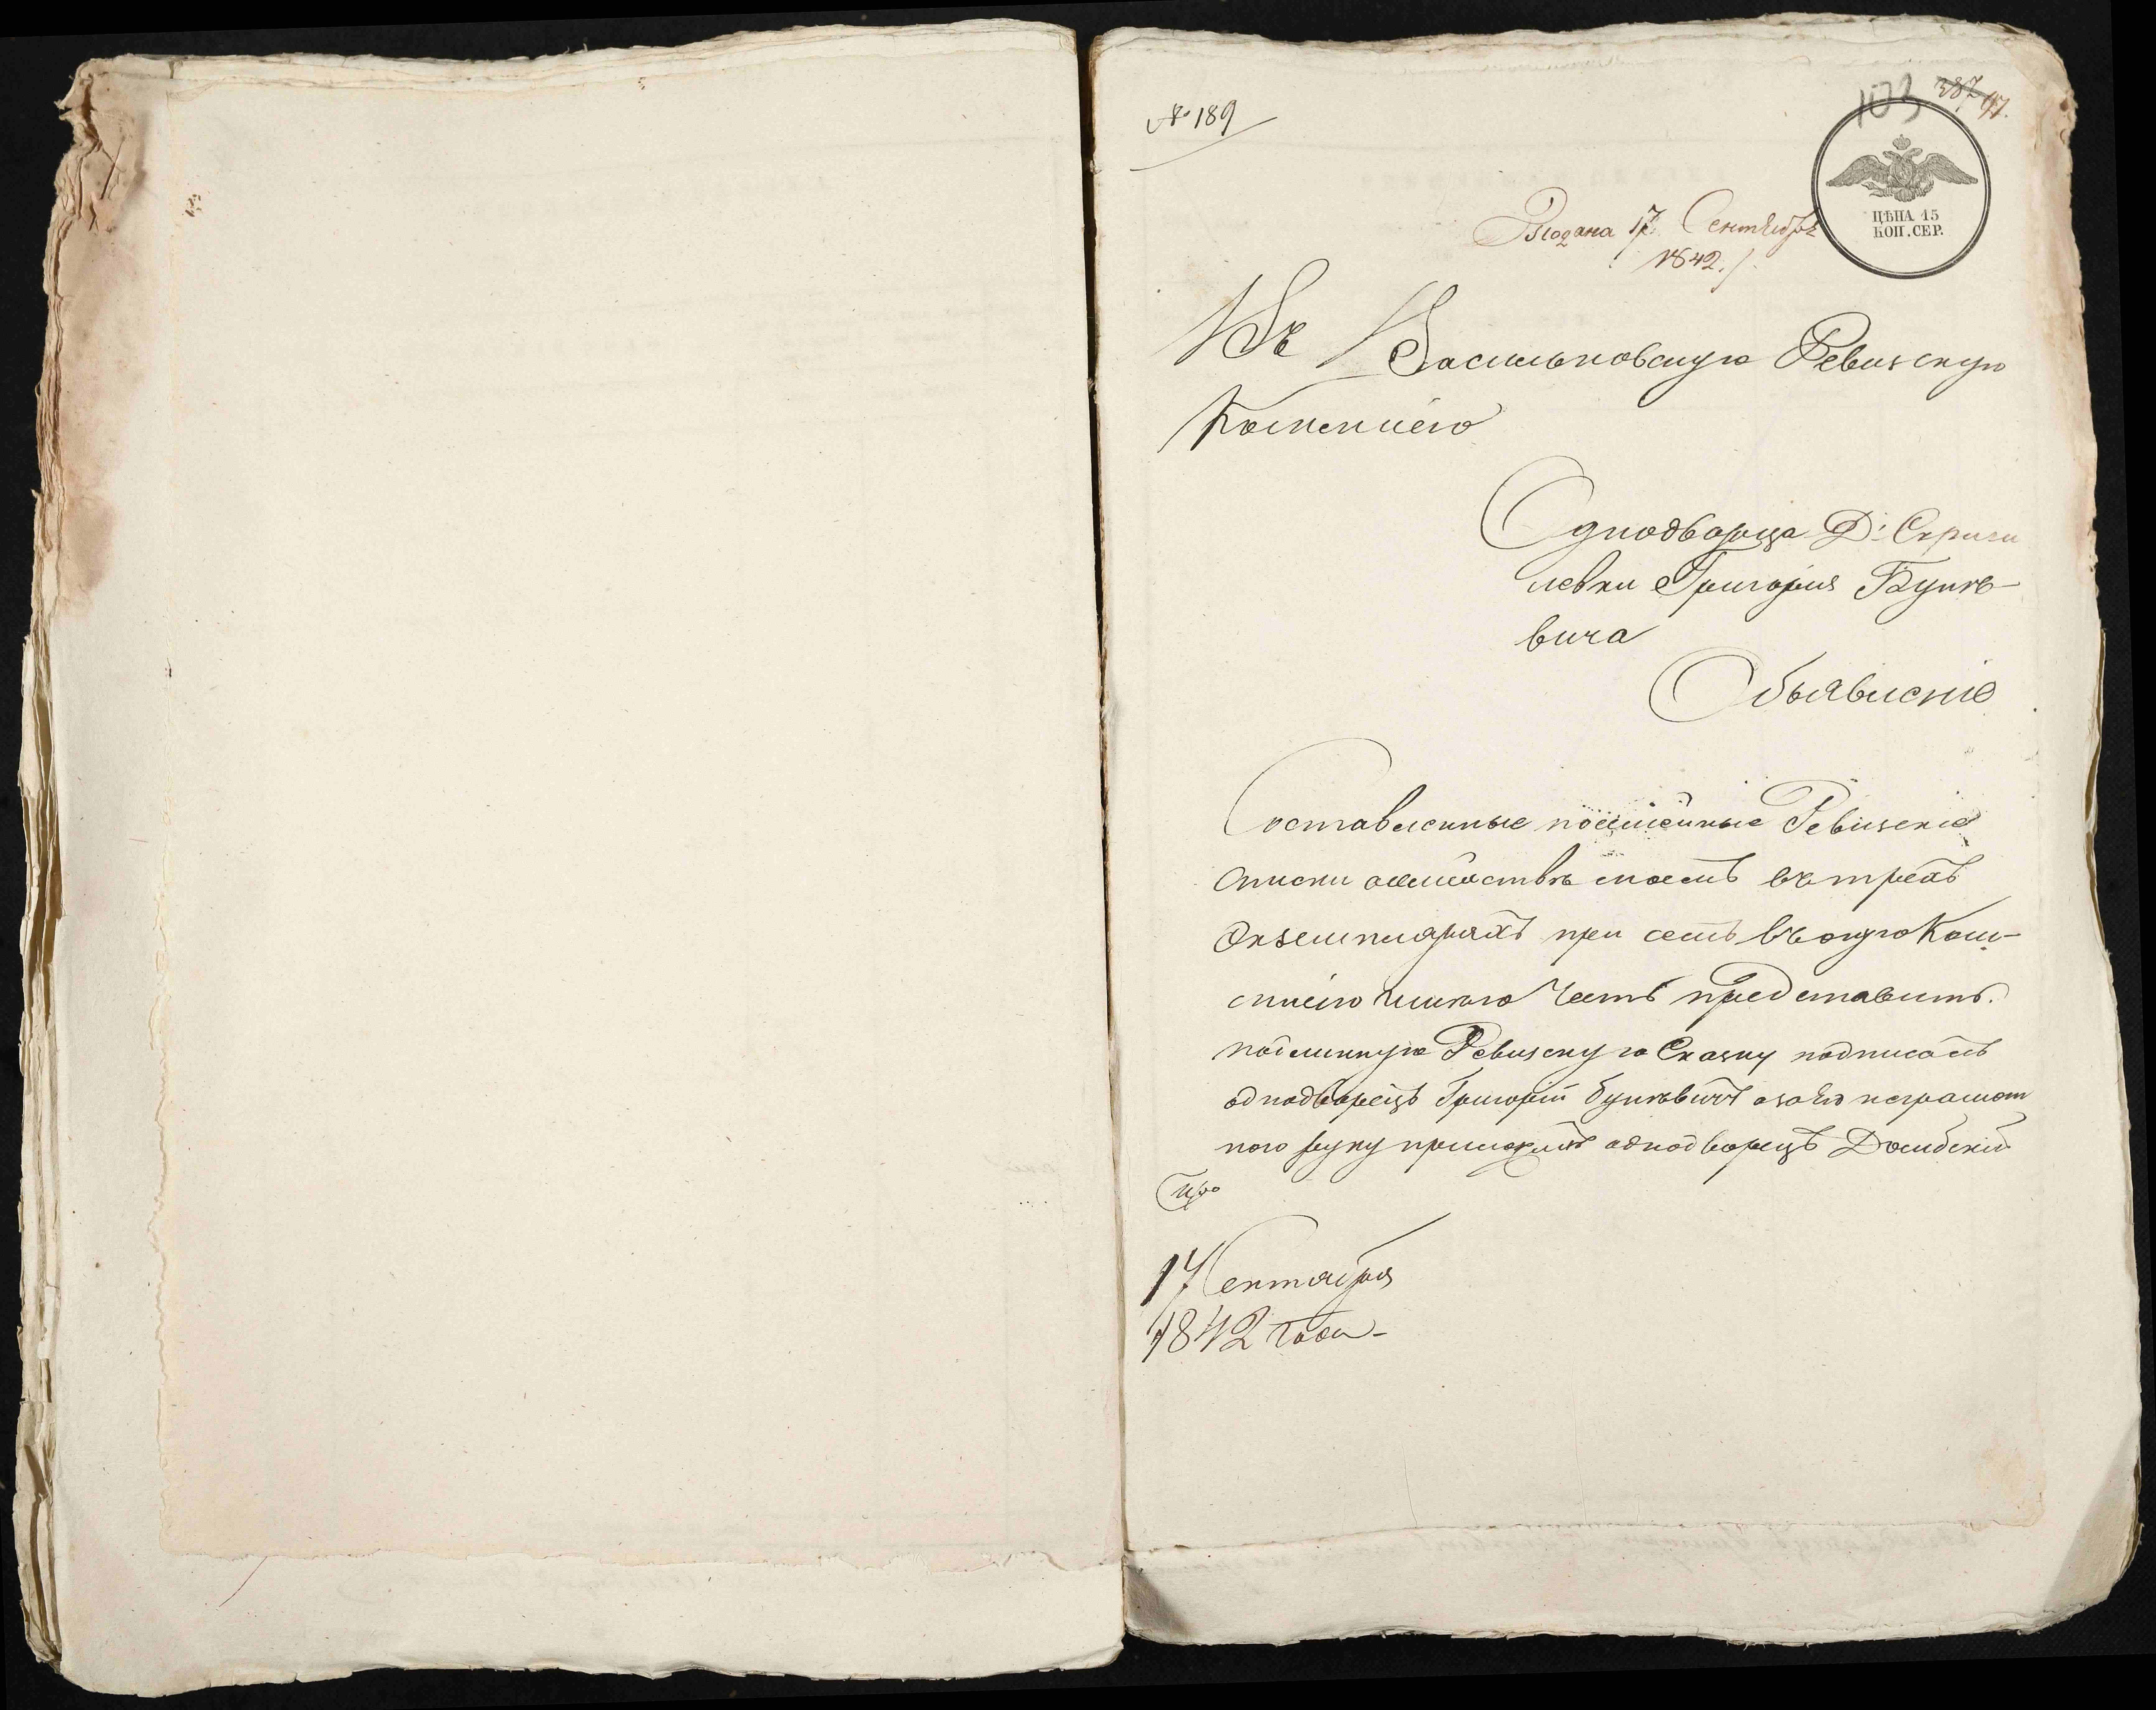 № 189
103 387 97.
ЦѢНА 15
КОП. СЕР.
Подана 17. Сентября
1842.
Въ Васильковскую Ревизскую
Комисию
Однодворца Д: Скриги
левки Григория Буткѣ
вича
Объявленіе
Составленные посемейные Ревизскіе
Списки о семѣйствѣ моемъ въ трехъ
Экземплярахъ при семъ въ оную Ком-
мисію имѣю честь представить.
подлинную Ревизскую Сказку подписалъ
однодворецъ Григорій Буткѣвичъ а за его неграмот
ного руку приложилъ однодворецъ Домбскій
17 Сентября
1842 года